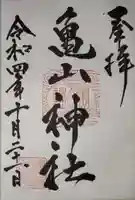 奉拝
亀山神社
令和四年十月二十一日